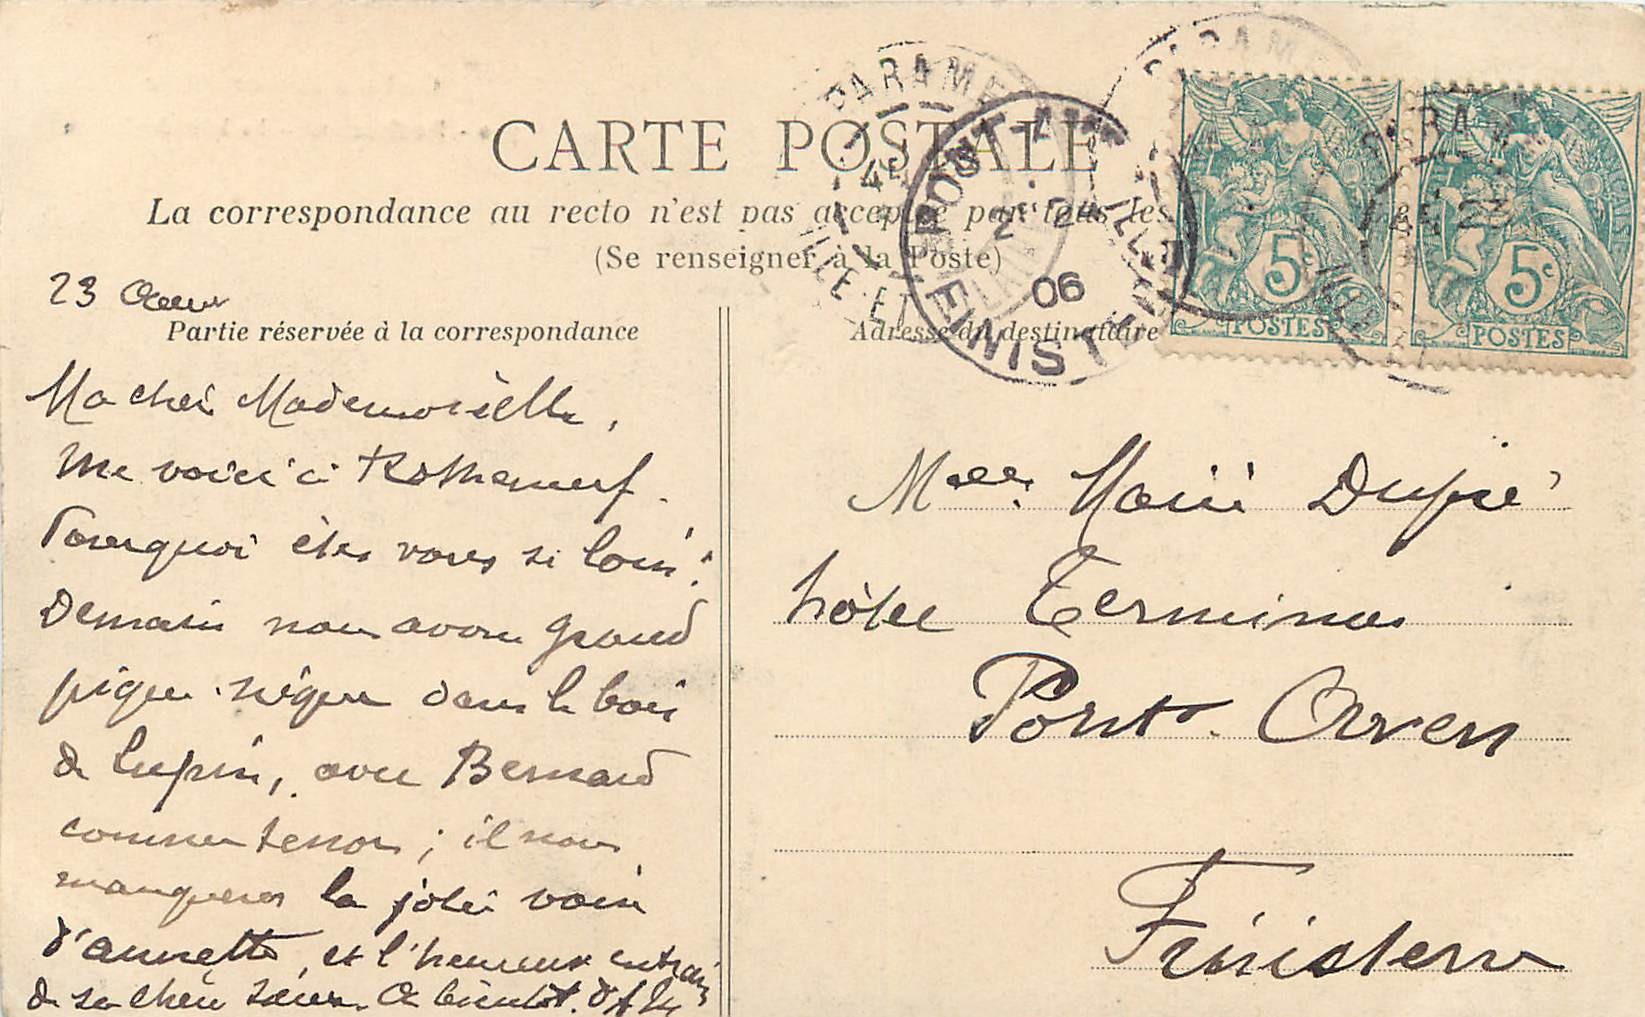 CARTE POSTALE
La correspondance au recto n'est pas acceptée par tous les
(Se renseigner à la Poste)
Partie réservée à la correspondance
Adresse du destinataire
PARAMÉ
ILLE-ET
PONT-AVEN
06
FINISTÈRE
5c
POSTES
5c
POSTES
23
Ma chère Mademoiselle,
Me voici à Rothéneuf.
Pourquoi êtes vous si loin!
Demain nous avons grand
pique-nique dans le bois
de lupin, avec Bernard
comme tenor ; il nous
manquera la jolie voix
d'annette, et l'heureux entrain
de sa chère soeur. A bientôt.
Melle Marie Dupré
hôtel Terminus
Pont-Aven
Finistère